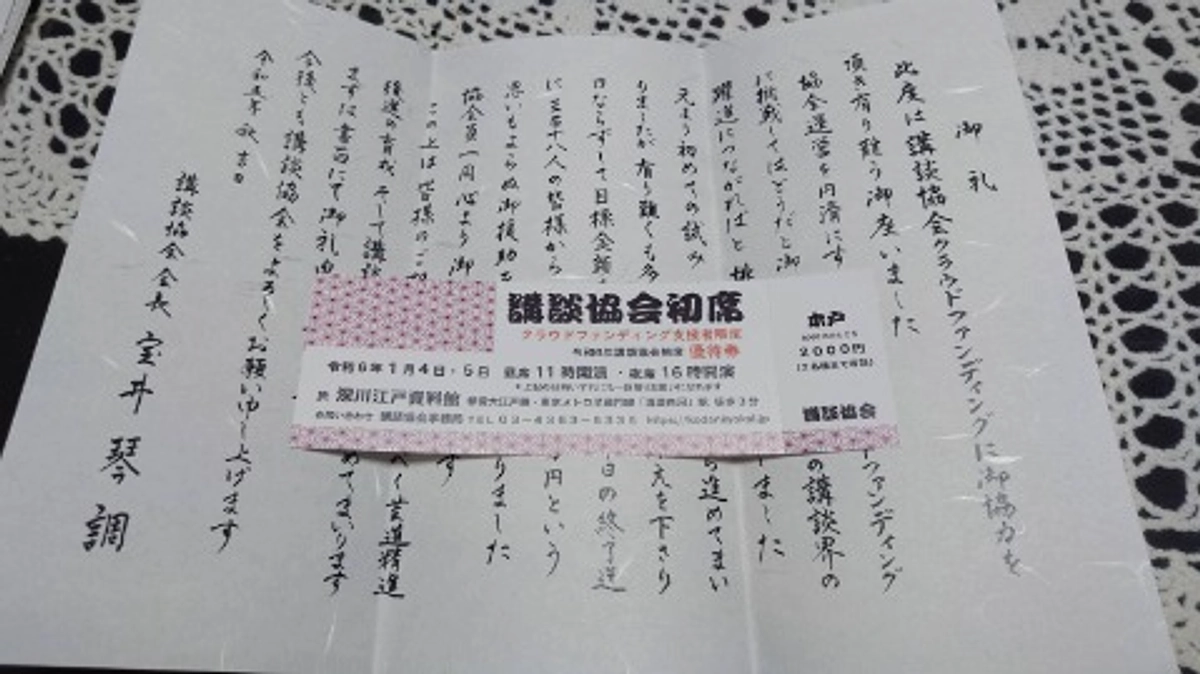 御礼
此度は講談協会クラウドファンディングに御協力を
頂き有り難う御座いました
ファンディング
協会運営を円滑にす
の講談界の
に挑戦してはどうだと御
ました
躍進につながればと
ら進めてまい
元より初めての試み
えを下さり
りましたが有り難くも多
日の終了迄
日ならずして目標金額
円という
に三百十八人の皆様から
りました
思いもよらぬ御援助
協会員一同心より御
す
この上は皆様のご
く芸道精進
後進の育成そして講談
めてまいります
まずは書面にて御礼申
今後とも講談協会をよろしくお願い申し上げます
令和五年秋吉日
講談協会会長 宝井琴調
講談協会初席
クラウドファンディング支援者限定
令和6年講談協会初席 優待券
令和6年1月4日・5日 昼席11時開演・夜席16時開演
於 深川江戸資料館 都営大江戸線・東京メトロ半蔵門線「清澄白河」駅 徒歩3分
お問い合わせ 講談協会事務局
木戸
2000円
講談協会